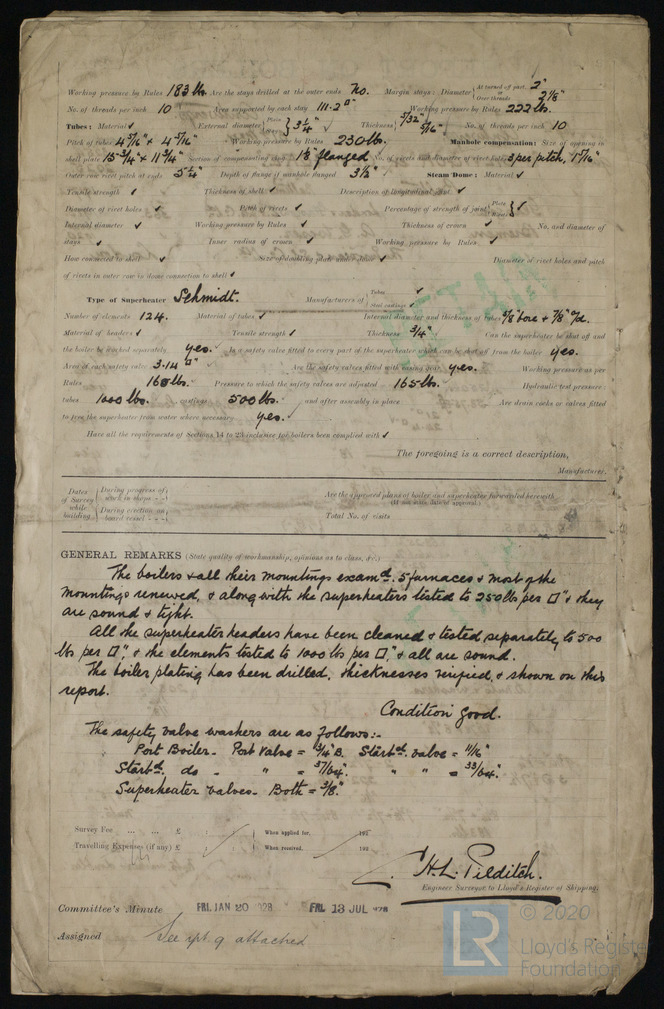 Working pressure by Rules 183 lbs Are the stays drilled at the outer ends No. Margin stays: Diameter { At turned off part, 2" or Over threads 2 1/8"
No. of threads per inch 10 Area supported by each stay 111.2 □" Working pressure by Rules 222 lbs.
Tubes: Material ✓ External diameter { Plain Stay } 3 1/4" ✓ Thickness { 5/32" 5/16" ✓ No. of threads per inch 10
Pitch of tubes 4 5/16" + 4 5/16" Working pressure by Rules 230 lbs. Manhole compensation: Size of opening in
shell plate 15 3/4" × 11 3/4" Section of compensating ring flanged No. of rivets and diameter of rivet holes 3 per pitch, 1 5/16"
Outer row rivet pitch at ends 5 1/4" Depth of flange if manhole flanged 3 1/2" Steam Dome: Material ✓
Tensile strength ✓ Thickness of shell ✓ Description of longitudinal joint ✓
Diameter of rivet holes ✓ Pitch of rivets ✓ Percentage of strength of joint { Plate Rivets } ✓
Internal diameter ✓ Working pressure by Rules ✓ Thickness of crown ✓ No. and diameter of
stays ✓ Inner radius of crown ✓ Working pressure by Rules ✓
How connected to shell ✓ Size of doubling plate under dome ✓ Diameter of rivet holes and pitch
of rivets in outer row in dome connection to shell ✓
Type of Superheater Schmidt. Manufacturers of { Tubes ✓ Steel castings ✓
Number of elements 124. Material of tubes ✓ Internal diameter and thickness of tubes 5/8" bore + 7/8" o/d.
Material of headers ✓ Tensile strength ✓ Thickness 3/4" Can the superheater be shut off and
the boiler be worked separately yes. Is a safety valve fitted to every part of the superheater which can be shut off from the boiler yes.
Area of each safety valve 3.14 □" Are the safety valves fitted with easing gear yes. Working pressure as per
Rules 168 lbs. Pressure to which the safety valves are adjusted 165 lbs. Hydraulic test pressure:
tubes 1000 lbs. castings 500 lbs. and after assembly in place Are drain cocks or valves fitted
to free the superheater from water where necessary yes.
Have all the requirements of Sections 14 to 23 inclusive for boilers been complied with ✓
The foregoing is a correct description,
Manufacturer.
Dates of Survey while building { During progress of work in shops - - During erection on board vessel - - -
Are the approved plans of boiler and superheater forwarded herewith
(If not state date of approval.)
Total No. of visits
GENERAL REMARKS (State quality of workmanship, opinions as to class, &c.)
The boilers & all their mountings exam.d. 5 furnaces & most of the
mountings renewed, & along with the superheaters tested to 250 lbs per □" & they
are sound & tight.
All the superheater headers have been cleaned & tested separately to 500
lbs per □", & the elements tested to 1000 lbs per □", & all are sound.
The boiler plating has been drilled, thicknesses verified, & shown on this
report.
Condition good.
The safety valve washers are as follows:-
Port Boiler - Port Valve = 3/4" B. Starb.d. valve = 11/16"
Starb.d. do - " = 37/64". " " = 33/64".
Superheater valves - Both = 3/8".
Survey Fee ... ... £ : : When applied for, 192
Travelling Expenses (if any) £ : : When received, 192
H.L. Pilditch.
Engineer Surveyor to Lloyd's Register of Shipping.
Committee's Minute FRI. JAN 20 1928 FRI. 13 JUL 1928
Assigned See rpt. 9 attached
LR © 2020
Lloyd's Register
Foundation